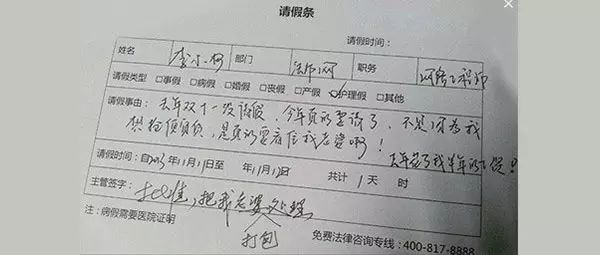 请假条
请假时间:
姓名 李小 部门 法师网 职务 网络工程师
请假类型 □事假 □病假 □婚假 □丧假 □产假 ☑护理假 □其他
请假事由: 去年双十一没请假,今年真的要请了,不是因为我
想抢便宜货,是真的要看住我老婆啊!
去年花了我半年的工资!
请假时间:自2015年11月11日至 年11月12日 共计 1 天 时
主管签字: 批准,把我老婆处理
打包
注:病假需要医院证明
免费法律咨询专线:400-817-8888